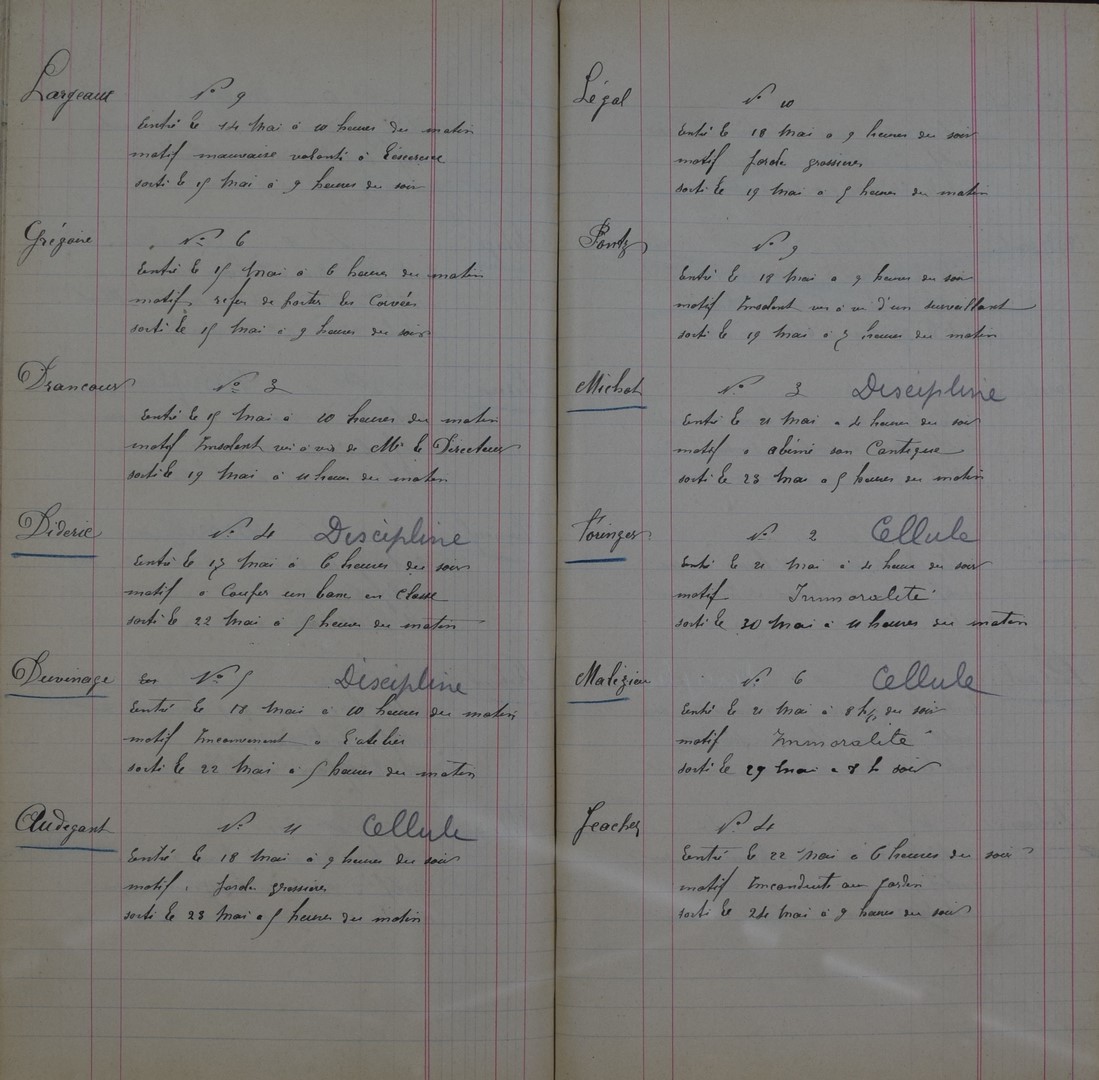 Largeaux
N° 9
Entré le 14 Mai à 10 heures du matin
motif mauvaise volonté à
sorti le 15 Mai à 9 heures du soir
Grégoire
N° 6
Entré le 15 Mai à 6 heures du matin
motif refus de porter les Corvées
sorti le 15 Mai à 9 heures du soir
Drancour
N° 3
Entré le 15 Mai à 10 heures du matin
motif Insolent vis à vis de Mr le Directeur
sorti le 19 Mai à 11 heures du matin
Diderie
N° 4 Discipline
Entré le 17 Mai à 6 heures du soir
motif a Couper un banc en Classe
sorti le 22 Mai à 5 heures du matin
Duvinage
N° 5 Discipline
Entré le 18 Mai à 10 heures du matin
motif Inconvenant a l'atelier
sorti le 22 Mai à 5 heures du matin
Audegant
N° 11 Cellule
Entré le 18 Mai à 9 heures du soir
motif, parole grossières
sorti le 23 Mai a 5 heures du matin
Légal
N° 10
Entré le 18 Mai a 9 heures du soir
motif parole grossières
sorti le 19 Mai à 5 heures du matin
Pontz
N° 9
Entré le 18 Mai a 9 heures du soir
motif Insolent vis à vis d'un surveillant
sorti le 19 Mai à 5 heures du matin
Michot
N° 3 Discipline
Entré le 21 Mai a 4 heures du soir
motif a abimé son Cantique
sorti le 23 Mai a 5 heures du matin
N° 2 Cellule
Entré le 21 Mai à 4 heures du soir
motif Immoralité
sorti le 30 Mai à 11 heures du matin
Malézieu
N° 6 Cellule
Entré le 21 Mai à 8 h½ du soir
motif Immoralité
sorti le 29 Mai a 8 h soir
N° 4
Entré le 22 Mai à 6 heures du soir
motif Inconduite au Jardin
sorti le 24 Mai à 9 heures du soir